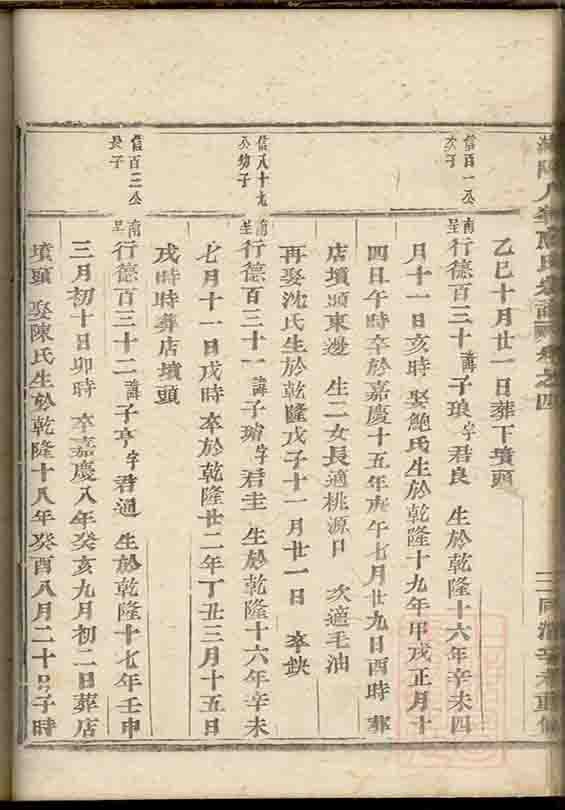 乙巳十月廿一日葬下墳頭
信百一公次子
南呈行德百三十諱子琅字君良 生於乾隆十六年辛未四
月十一日亥時 娶鮑氏生於乾隆十九年甲戌正月十
四日午時卒於嘉慶十五年庚午七月廿九日酉時葬
店墳頭東邊 生二女長適桃源日 次適毛油
再娶沈氏生於乾隆戊子十一月廿一日 卒缺
信八十九公幼子
南呈行德百三十一諱子璿字君圭 生於乾隆十六年辛未
七月十一日戌時 卒於乾隆廿二年丁丑三月十五日
戌時時葬店墳頭
信百二公長子
南呈行德百三十二諱子亨字君通 生於乾隆十七年壬申
三月初十日卯時 卒嘉慶八年癸亥九月初二日葬店
墳頭 娶陳氏生於乾隆十八年癸酉八月二十号子時